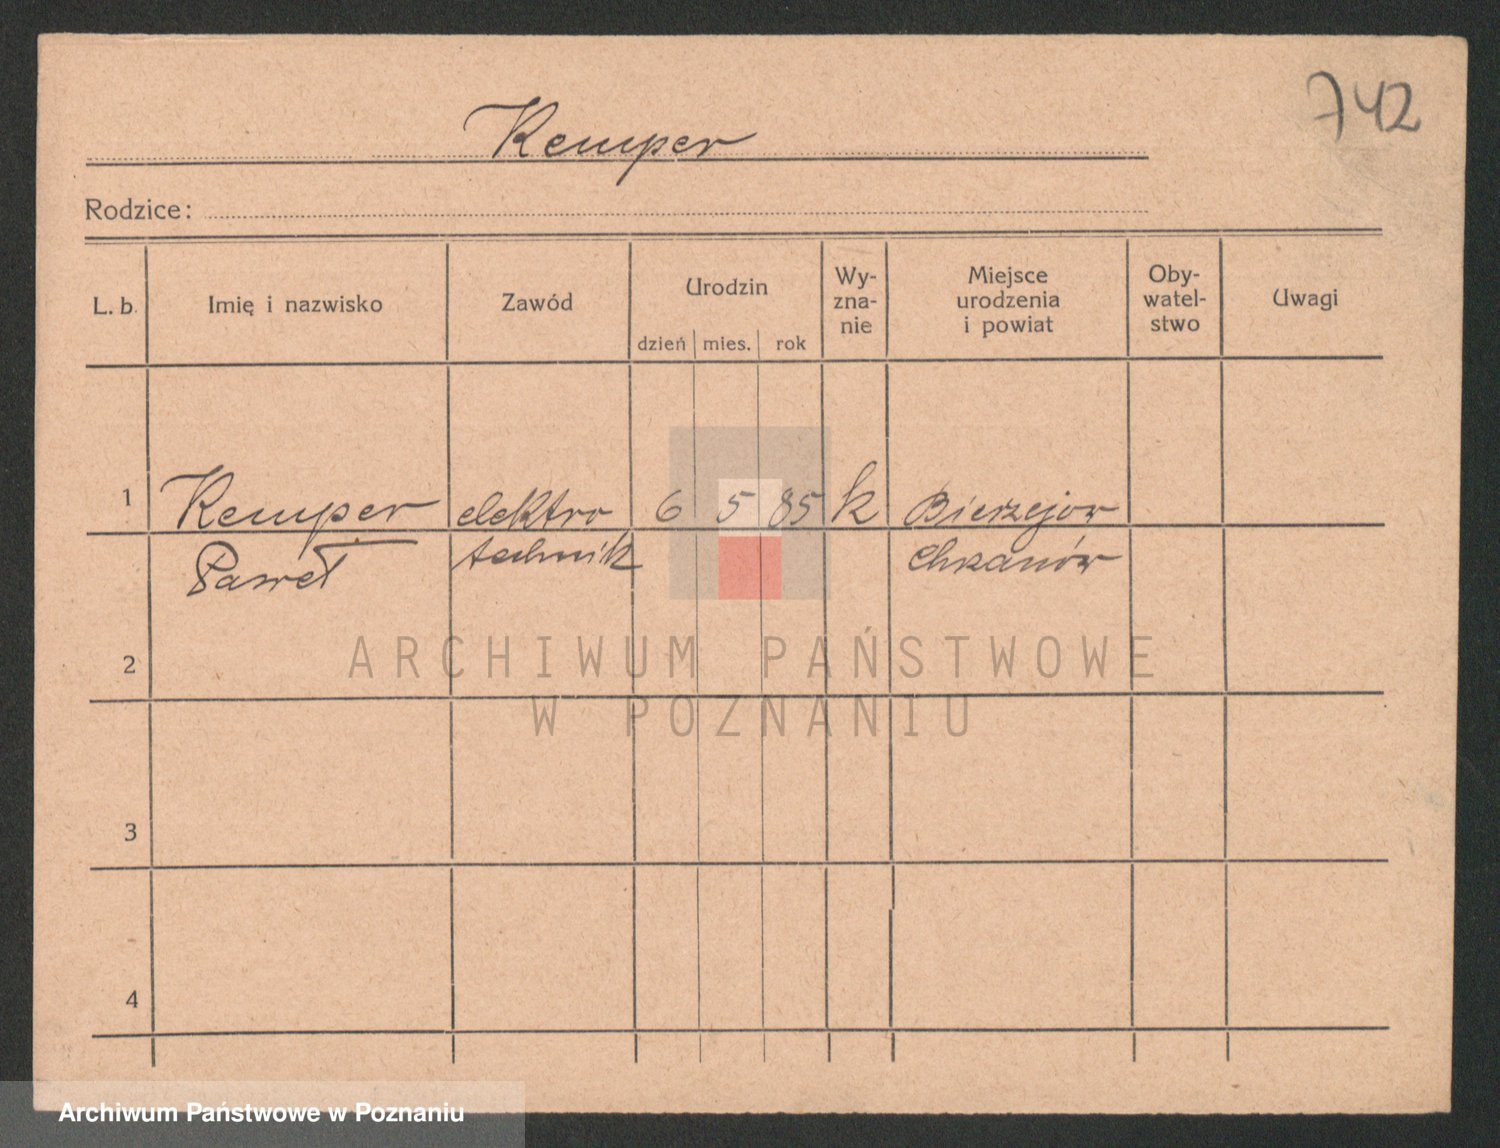 742
Kemper
Rodzice:
L. b. Imię i nazwisko Zawód Urodzin Wy- Miejsce Oby- Uwagi
zna- urodzenia watel-
nie i powiat stwo
dzień mies. rok
1 Kemper elektro 6 5 85 k
Paweł technik
2
ARCHIWUM PAŃSTWOWE
W POZNANIU
3
4
Archiwum Państwowe w Poznaniu